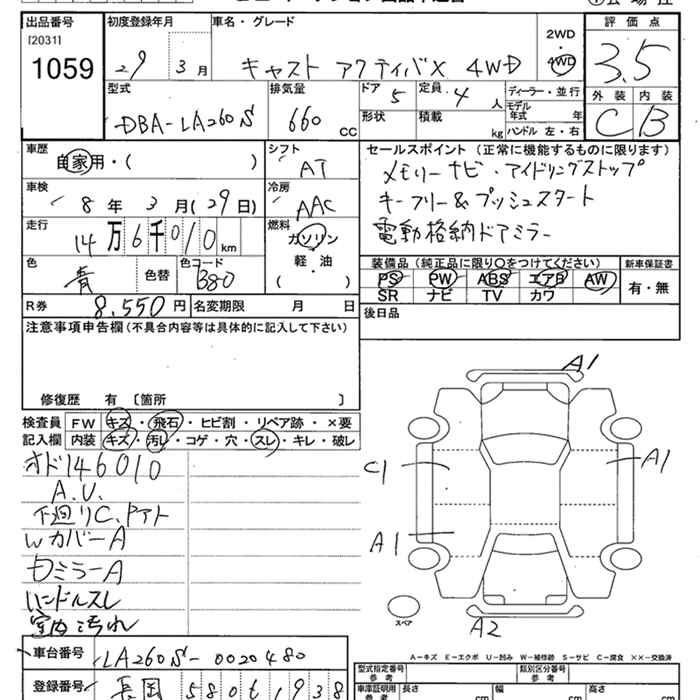 出品番号 初度登録年月 車名・グレード 評価点
[2031] 1059
29年 3月 キャスト アクティバX 4WD 2WD 4WD 3.5
型式 排気量 ドア 5 定員 4人 ディーラー・並行 外装 内装
DBA-LA260S 660 CC 形状 積載 kg モデル年式 年 ハンドル 左・右 C B
車歴 シフト セールスポイント (正常に機能するものに限ります)
自家用・( ) AT メモリーナビ・アイドリングストップ
車検 冷房 キーフリー&プッシュスタート
8年 3月(29日) AAC 電動格納ドアミラー
走行 14万6千010km 燃料 ガソリン 軽・油 ( )
色 青 色替 色コード B80
装備品 (純正品に限り○をつけてください) 新車保証書
PS PW ABS エアB AW 有・無
SR ナビ TV カワ
R券 8,550円 名変期限 月 日 後日品
注意事項申告欄 (不具合内容等は具体的に記入して下さい)
修復歴 有 〔箇所 〕
検査員 FW キズ・飛石・ヒビ割・リペア跡・×要
記入欄 内装 キズ・汚レ・コゲ・穴・スレ・キレ・破レ
オド146010
A.U.
下廻りC.Pアト
WカバーA
ミラーA
ハンドルスレ
室内汚れ
A1
C1 A1
A1
スペア
A2
A-キズ E-エクボ U-凹み W-補修跡 S-サビ C-腐食 ××-交換済
車台番号 LA260S-0020480
型式指定番号 参考 類別区分番号 参考
登録番号 長岡 580 1938
車庫証明用 参考 長さ cm 幅 cm 高さ cm